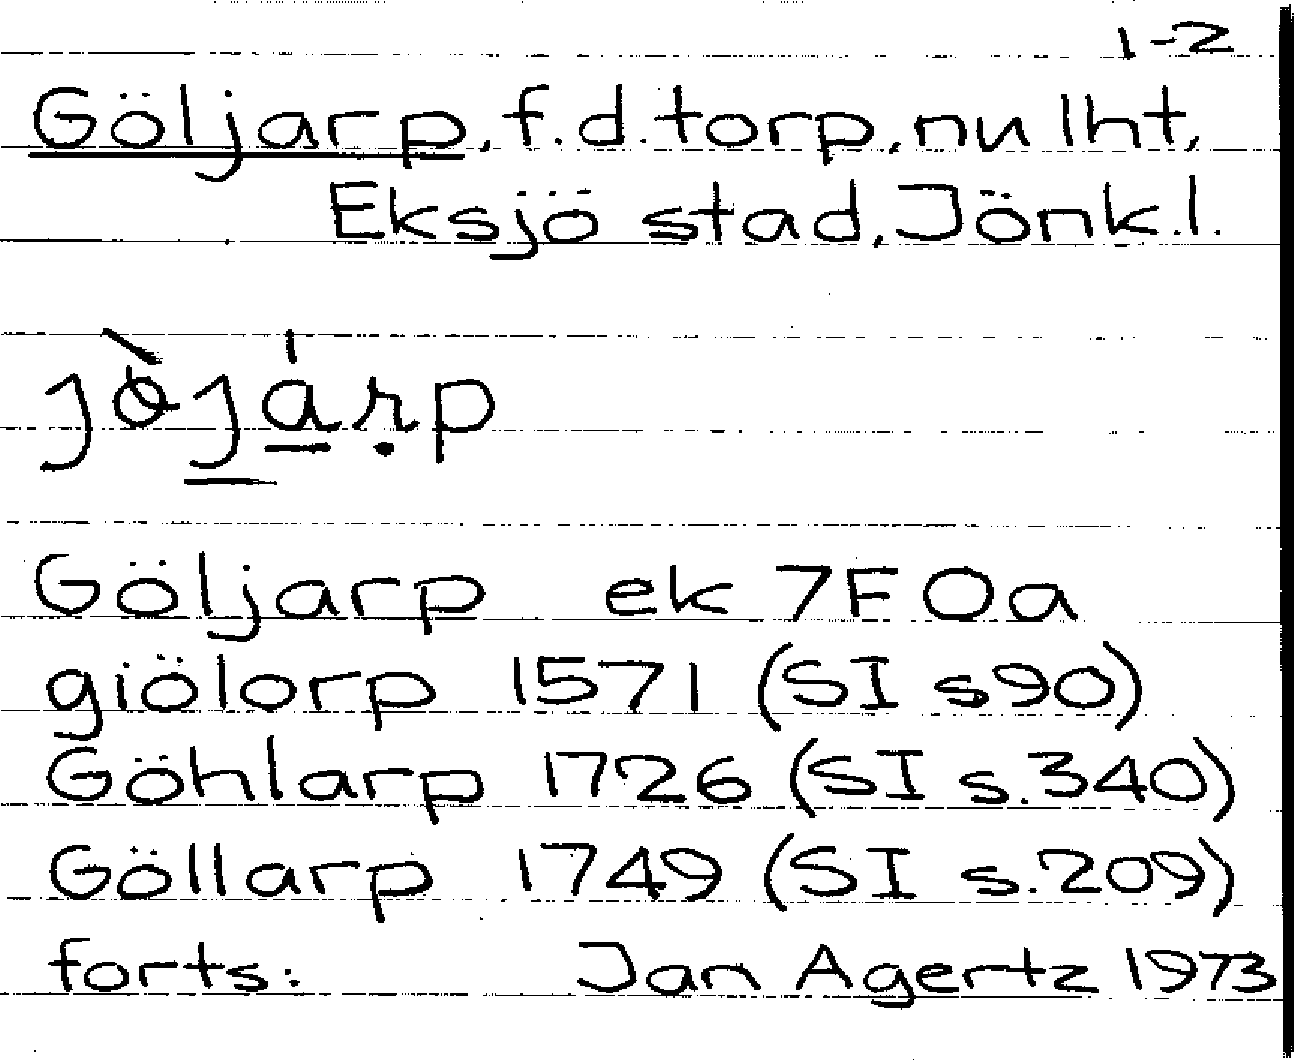 1-2
Göljarp, f.d. torp, nu lht,
Eksjö stad, Jönk.l.
jö̀ja̱ṛp
Göljarp ek 7F0a
giölorp 1571 (SI s90)
Göhlarp 1726 (SI s.340)
Göllarp 1749 (SI s.209)
forts: Jan Agertz 1973